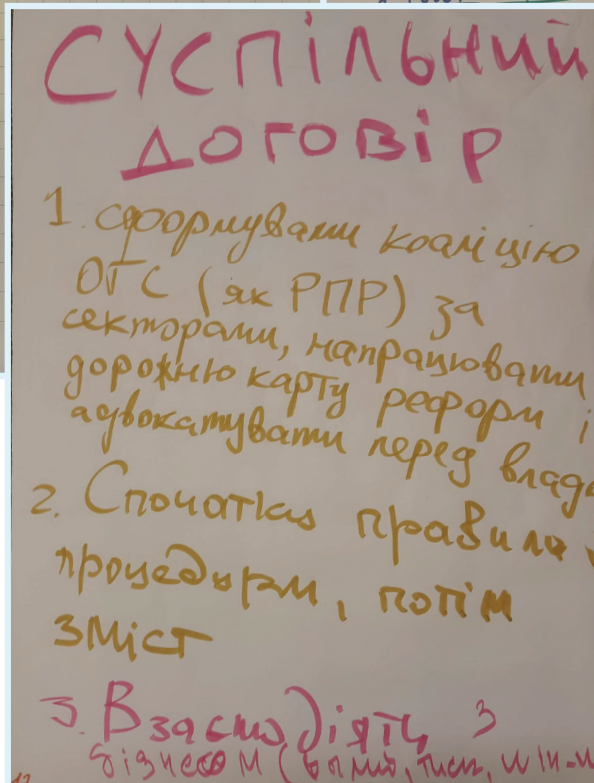 СУСПІЛЬНИЙ
ДОГОВІР
1. сформувати коаліцію
ОГС (як РПР) за
секторами, напрацювати
дорожню карту реформ і
адвокатувати перед
2. Спочатку правила
процедури, потім
зміст
3. Взаємодіяти з
бізнесом